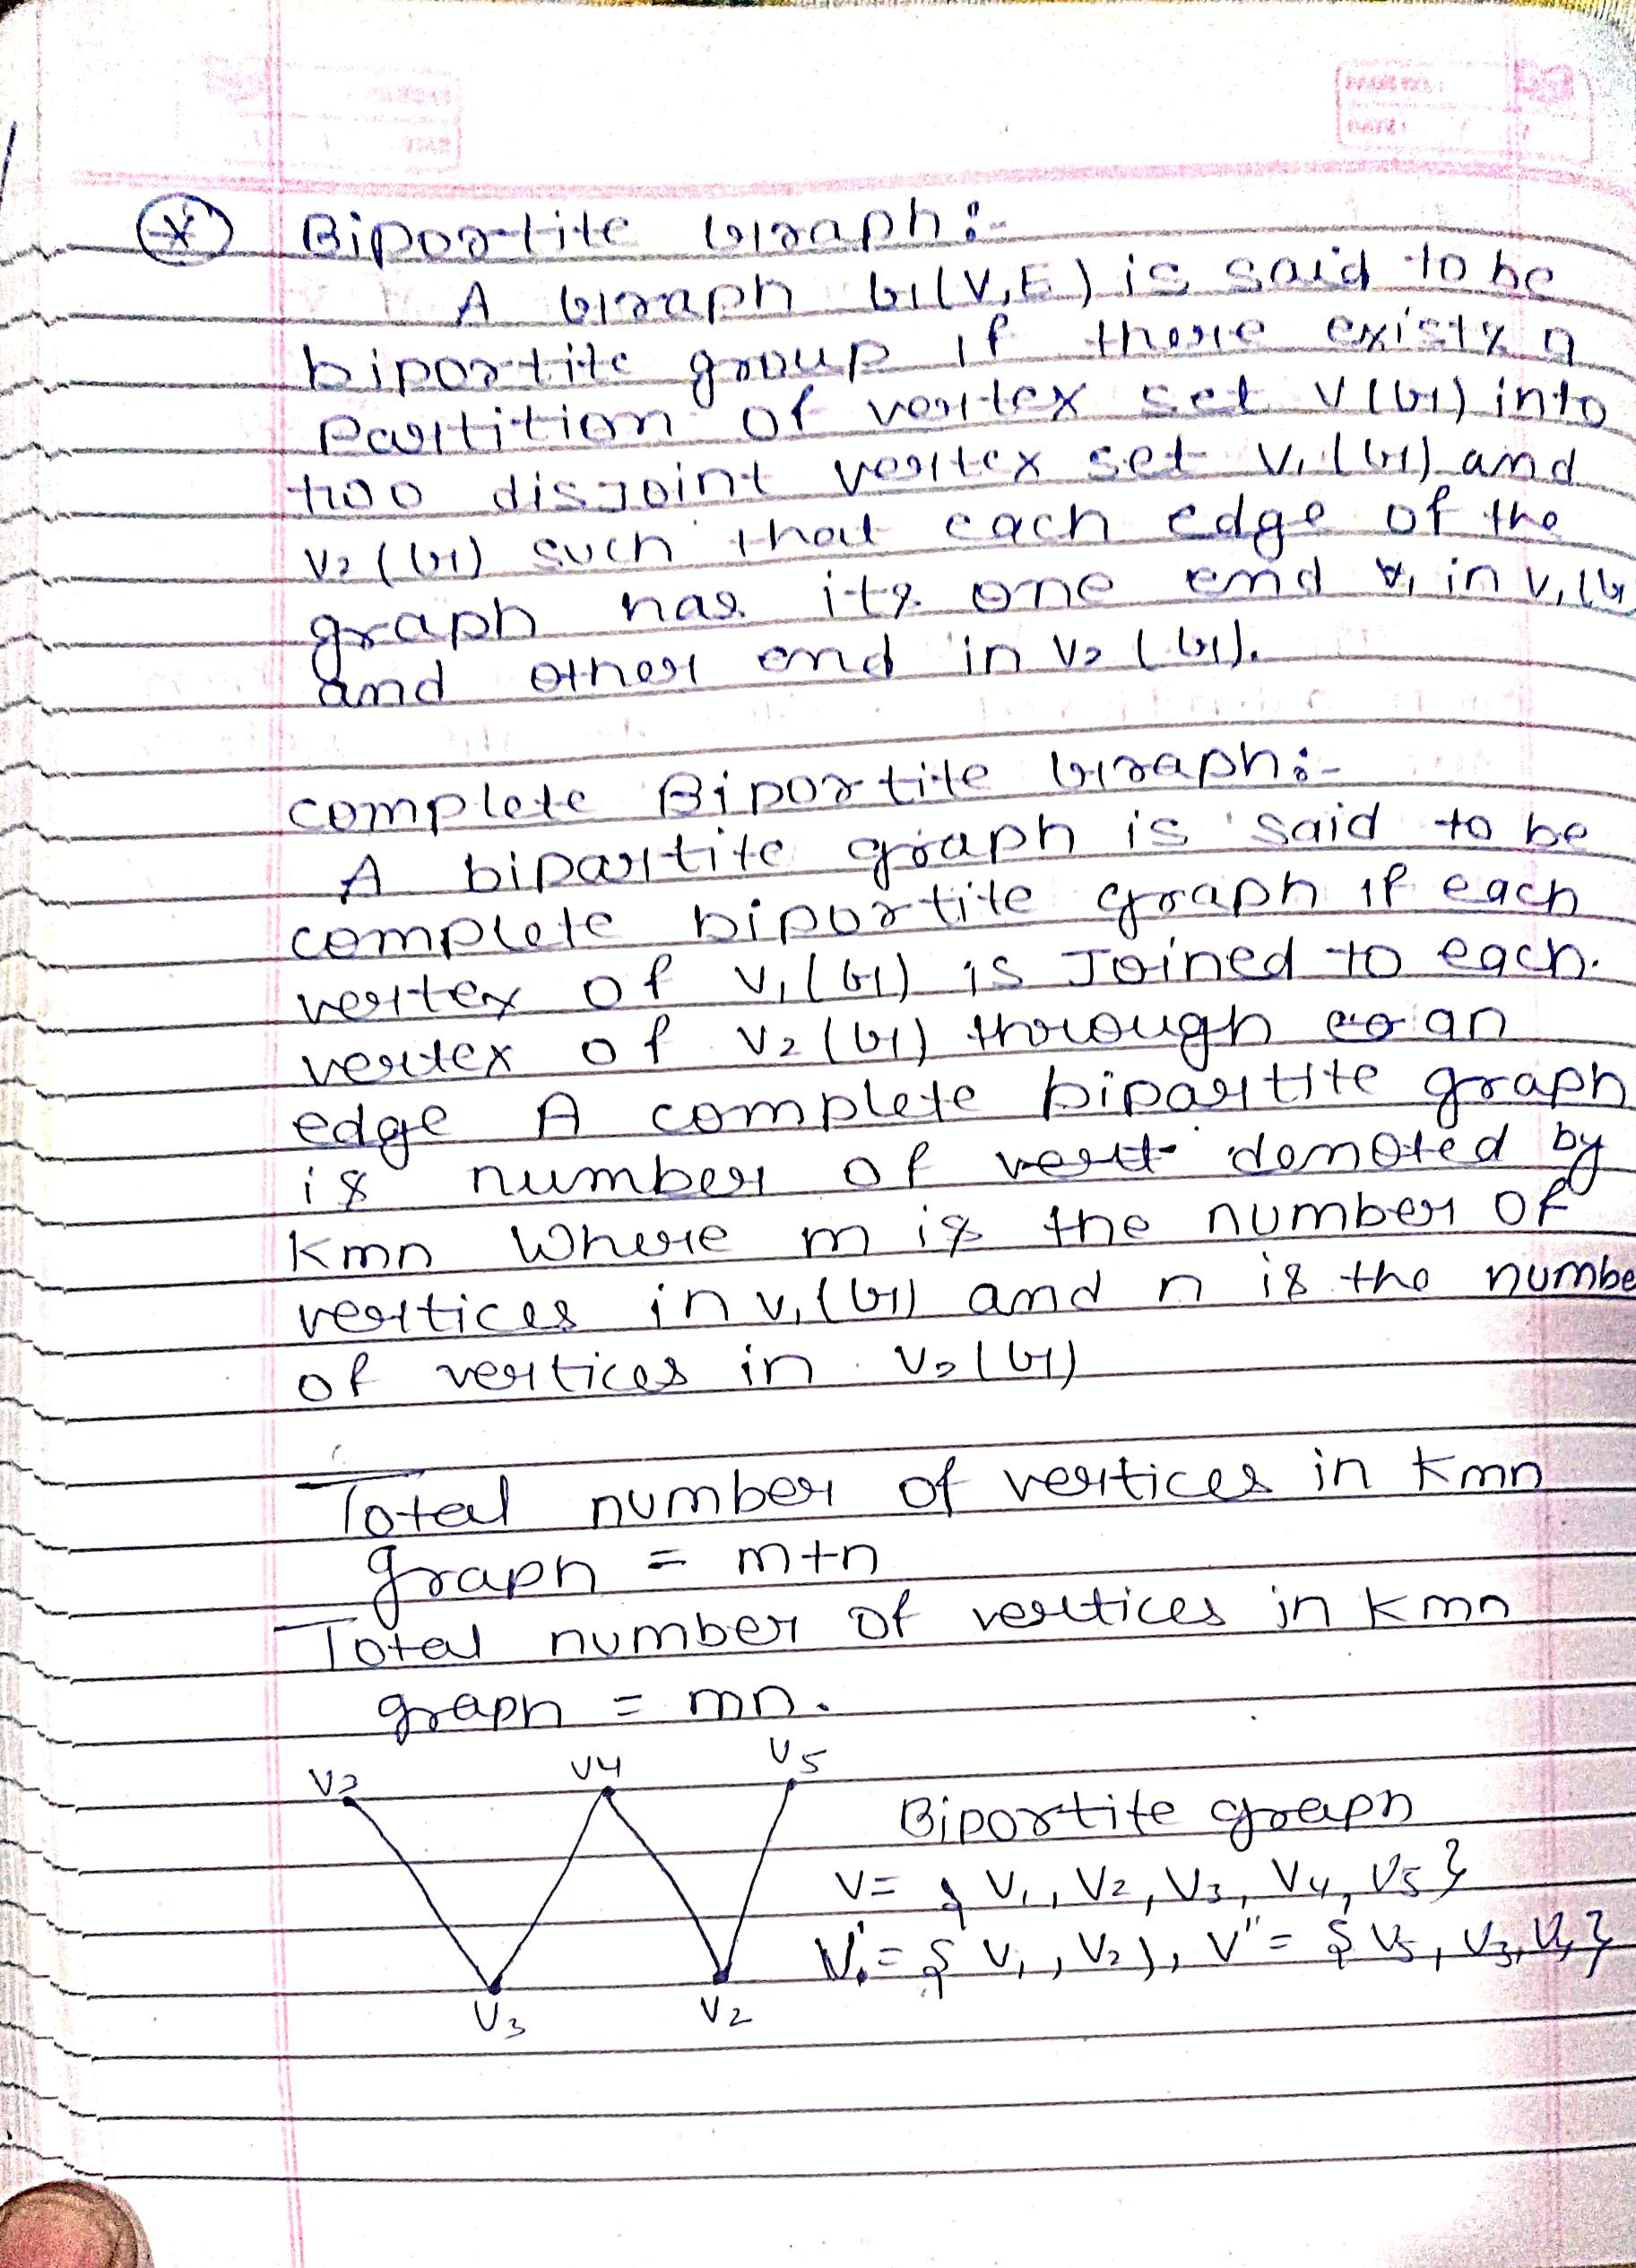 Biportite Graph:-
A Graph G(V,E) is said to be
biportite group if there exists a
Partition of vertex set V(G) into
two disjoint vertex set V1(G) and
V2(G) such that each edge of the
graph has its one end in V1(G
and other end in V2(G).
complete Biportite Graph:-
A bipartite graph is said to be
complete biportite graph if each
vertex of V1(G) is Joined to each
vertex of V2(G) through an
edge A complete bipartite graph
is number of vert denoted by
Kmn Where m is the number of
vertices in V1(G) and n is the numbe
of vertices in V2(G)
Total number of vertices in Kmn
graph = m+n
Total number of vertices in Kmn
graph = mn.
V4 V5
Biportite graph
V= { V1, V2, V3, V4, V5 }
V'= { V1, V2 }, V"= { V5, V3, }
V3 V2